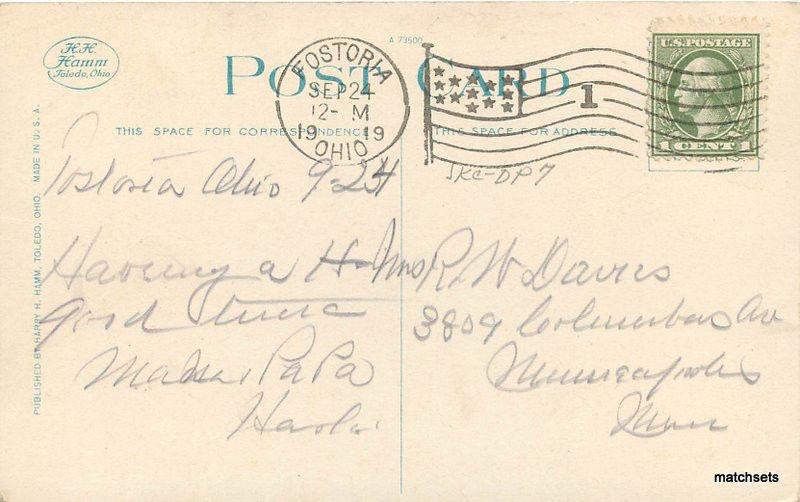 H.H.
Hamm
Toledo, Ohio
A 73500
POST CARD
FOSTORIA
SEP 24
12- M
1919
OHIO
1
U.S. POSTAGE
1 CENT 1
THIS SPACE FOR CORRESPONDENCE
THIS SPACE FOR ADDRESS
SKC-DP7
PUBLISHED BY HARRY H. HAMM, TOLEDO, OHIO. MADE IN U. S. A.
Fostoria Ohio 9-24
Having a
good time
Mama, PaPa
Mrs R. W Davies
3809 Columbus Av
Minneapolis
Minn
matchsets